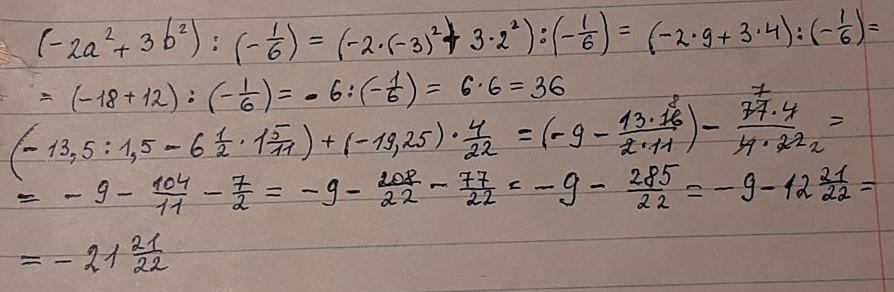 (-2a² + 3b²) : (-1/6) = (-2·(-3)² + 3·2²) : (-1/6) = (-2·9 + 3·4) : (-1/6) =
= (-18 + 12) : (-1/6) = -6 : (-1/6) = 6·6 = 36
(-13,5 : 1,5 - 6 1/2 · 1 5/11) + (-19,25) · 4/22 = (-9 - 13·16 8/2·11) - 77 7·4/4·22 2 =
= -9 - 104/11 - 7/2 = -9 - 208/22 - 77/22 = -9 - 285/22 = -9 - 12 21/22 =
= -21 21/22